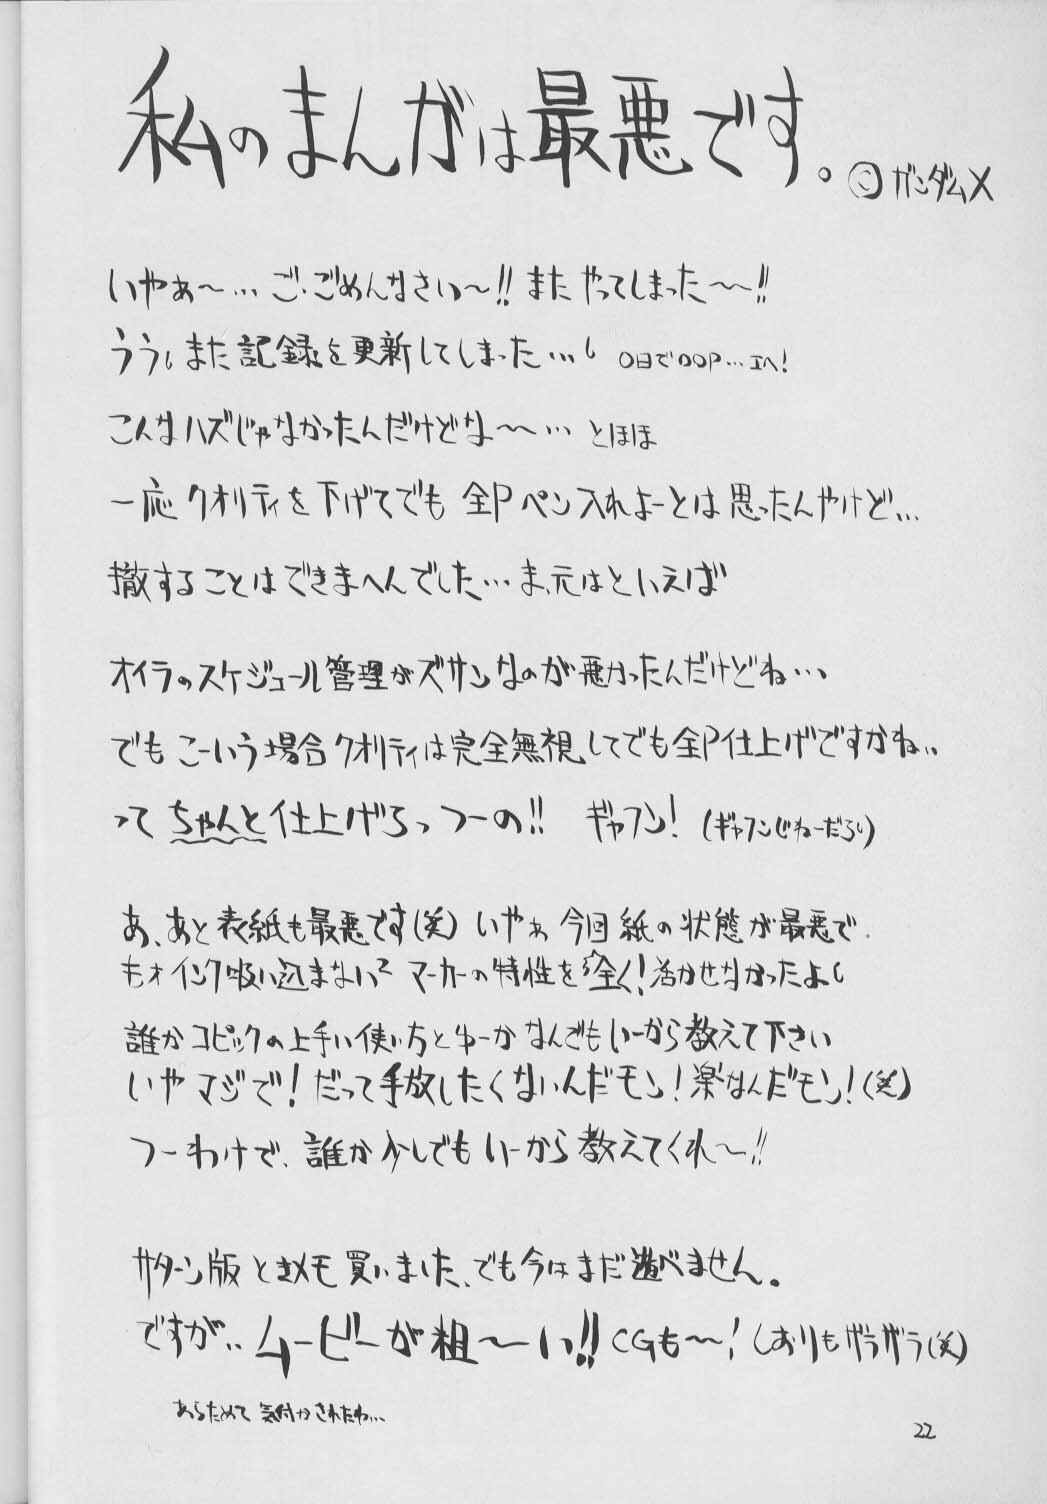 私のまんがは最悪です。©ガンダムX
いやぁ〜…ご・ごめんなさい〜!!またやってしまった〜〜!!
うう。また記録を更新してしまった…。〇日で〇〇P…エヘ!
こんなハズじゃなかったんだけどな〜〜…とほほ
一応クオリティを下げてでも全Pペン入れよーとは思ったんやけど…
撤することはできまへんでした…ま、元はといえば
オイラのスケジュール管理がズサンなのが悪かったんだけどね…
でもこーいう場合クオリティは完全無視してでも全P仕上げですかね..
ってちゃんと仕上げろっつーの!!ギャフン!(ギャフンじねーだろ)
あ、あと表紙も最悪です(笑)いやぁ今回紙の状態が最悪で
もォインク吸い込まないでマーカーの特性を全く!活かせなかったよ。
誰かコピックの上手い使い方とゆーかなんでもいーから教えて下さい
いやマジで!だって手放したくないんだモン!楽なんだモン!(笑)
つーわけで、誰か少しでもいーから教えてくれ〜!!
サターン版ときメモ買いました、でも今はまだ遊べません。
ですが..ムービーが粗〜い!!CGも〜!しおりもザラザラ(笑)
あらためて気付かされたわ…
22